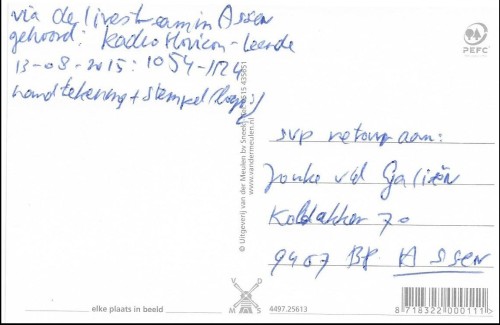 via de livestream in Assen
gehoord: Radio Horizon - Leende
13-08-2015: 1054-1124
handtekening + stempel
svp retour aan:
Jouke vd Galiën
Koldakker 70
9407 BP. Assen
PEFC
© Uitgeverij van der Meulen bv Sneek
0515 435851
www.vandermeulen.nl
elke plaats in beeld
4497.25613
8 718322 000111